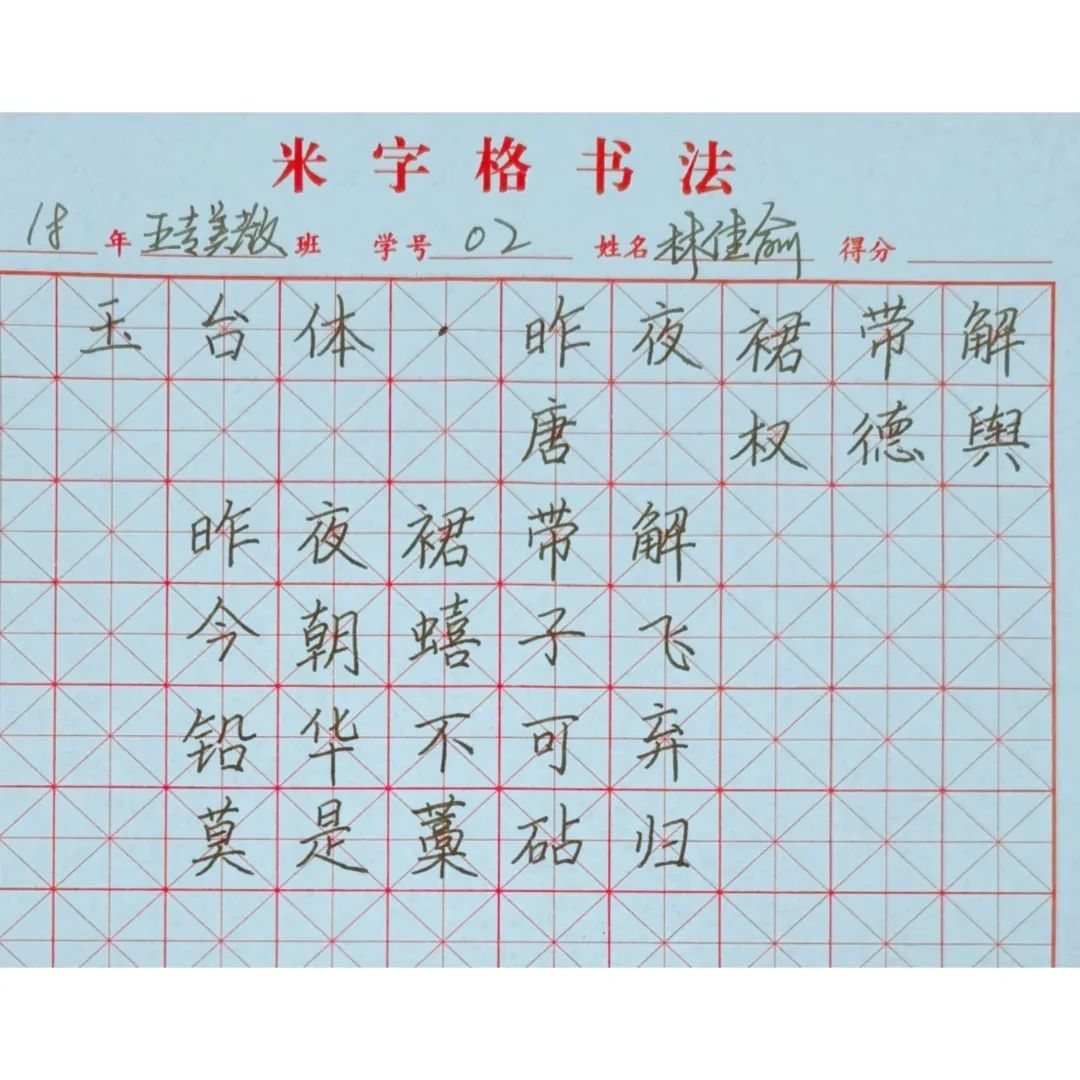 米字格书法
18年 五专美教班 学号 02 姓名 林佳俞 得分
玉台体·昨夜裙带解
唐 权德舆
昨夜裙带解
今朝蟢子飞
铅华不可弃
莫是藁砧归